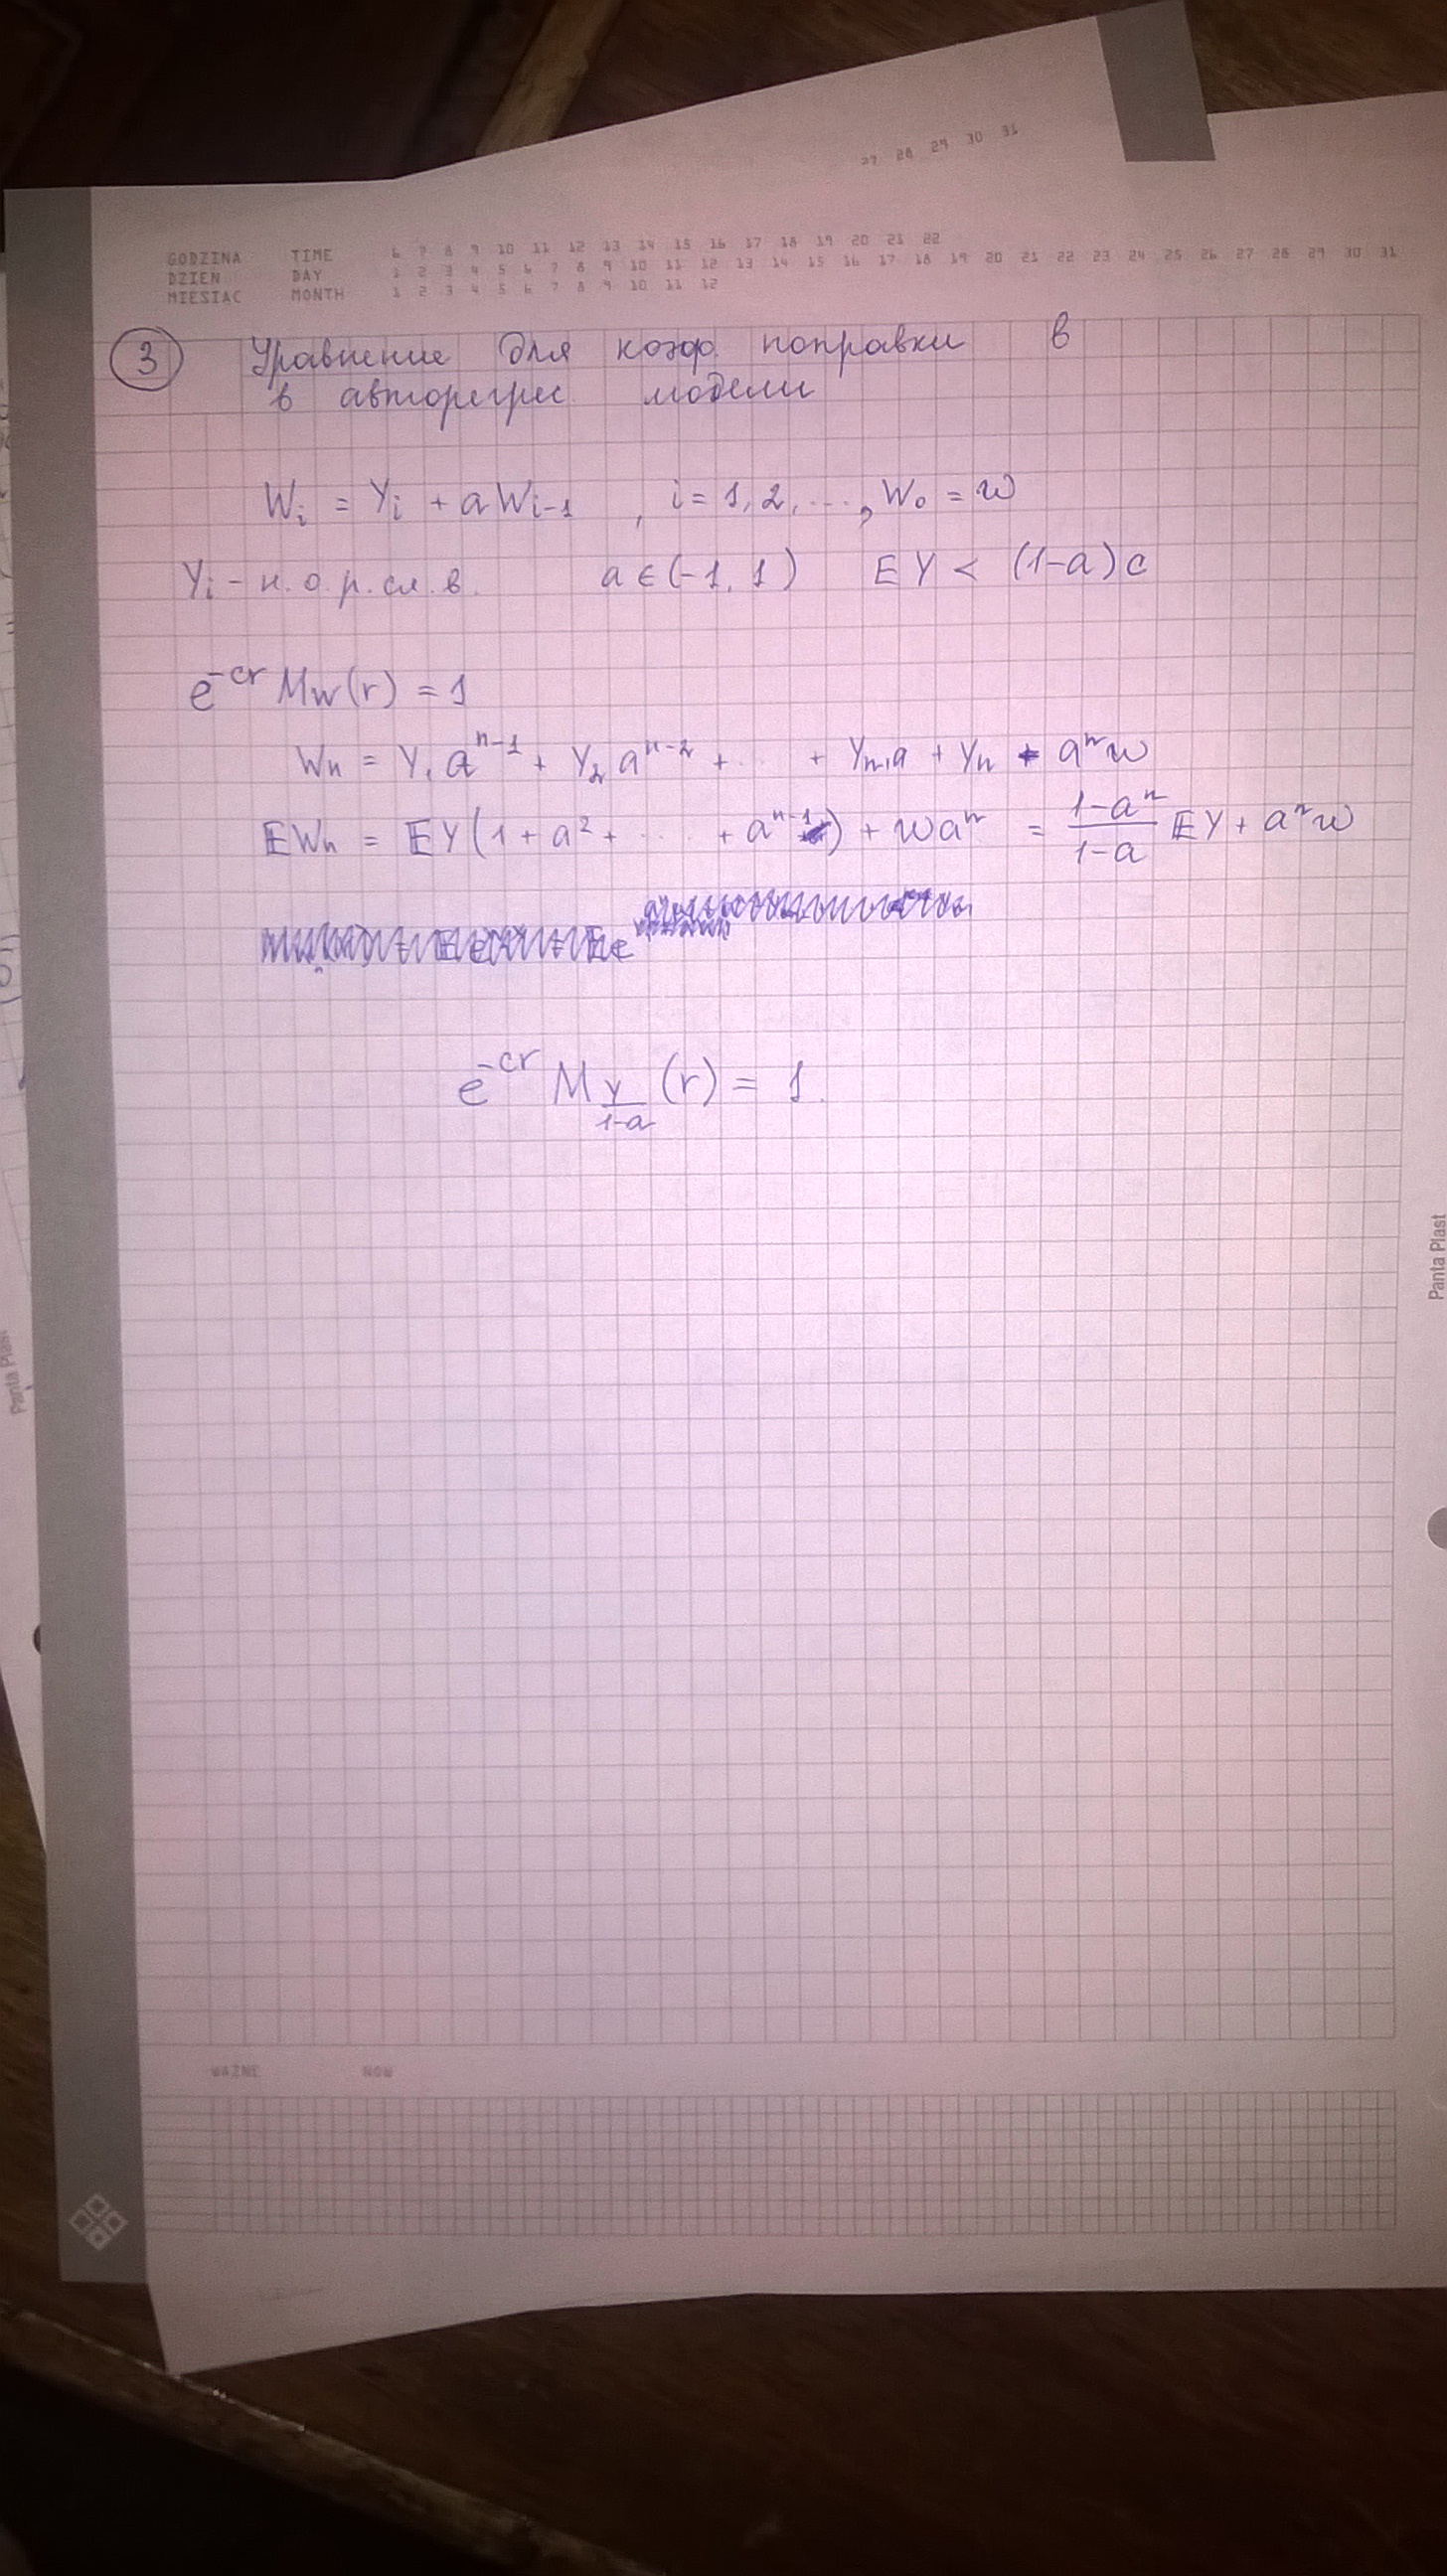 27 28 29 30 31
GODZINA TIME 6 7 8 9 10 11 12 13 14 15 16 17 18 19 20 21 22
DZIEŃ DAY 1 2 3 4 5 6 7 8 9 10 11 12 13 14 15 16 17 18 19 20 21 22 23 24 25 26 27 28 29 30 31
MIESIĄC MONTH 1 2 3 4 5 6 7 8 9 10 11 12
③ Уравнение для коэф. поправки в
в авторегрес. модели
Wᵢ = Yᵢ + aWᵢ₋₁ , i = 1, 2, ..., W₀ = w
Yᵢ - н.о.р.сл.в. a ∈ (-1, 1) EY < (1-a)c
e^{-cr} M_W(r) = 1
Wₙ = Y₁a^{n-1} + Y₂a^{n-2} + ... + Yₙ₋₁a + Yₙ + aⁿw
EWₙ = EY(1 + a² + ... + a^{n-1}) + waⁿ = \frac{1-aⁿ}{1-a} EY + aⁿw
e^{-cr} M_{\frac{Y}{1-a}}(r) = 1.
WAŻNE NOW
Panta Plast
Panta Plast